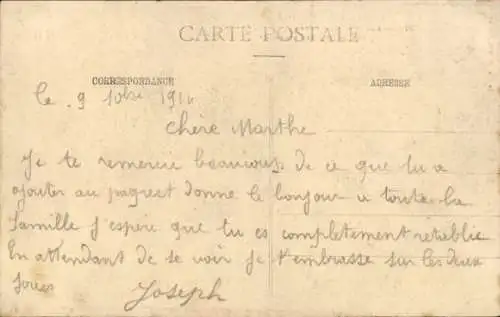 CARTE POSTALE
CORRESPONDANCE
ADRESSE
le 9 10bre 1914
Chère Marthe
Je te remercie beaucoup de ce que tu a
ajouter au paquest donne le bonjour a toute la
famille j'espère que tu es completement retablie
En attendant de se voir je t'embrasse sur les deux
joues Joseph